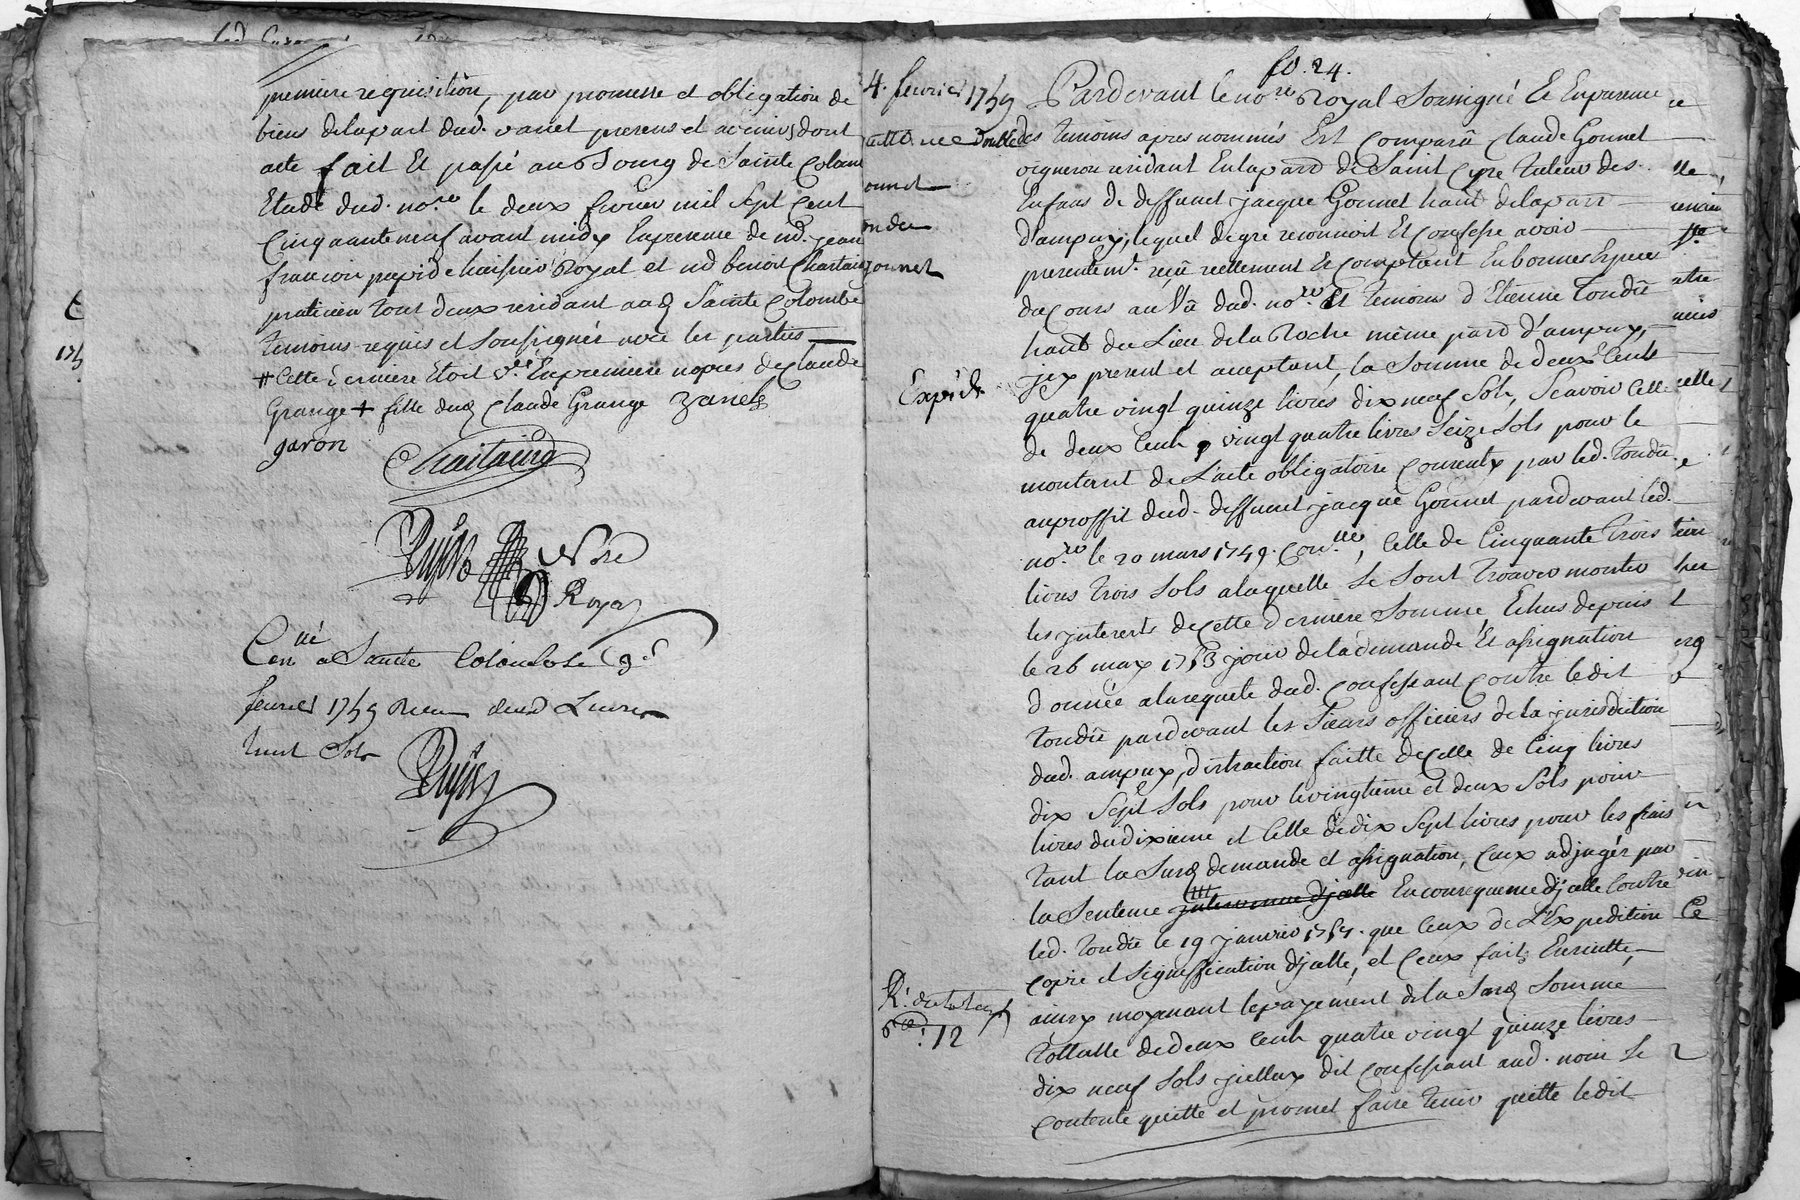 premiere requisition, par promesse et obligation de
biens delapart dud. vanel presens et avenirs dont
acte fait Et passé au Bourg de Sainte Colombe
Etude dud. no.re le deux fevrier mil Sept Cent
Cinquante neuf avant midy Enpresence de md. jean
francois huissier Royal et md benoit Chartain
praticien tous deux residant aud Sainte Colombe
temoins requis et Soussignés avec les parties
# Cette derniere Etoit v.e Enpremiere nopces de Claude
Grange + fille dud Claude Grange
garon
Chaitaing
Dujas No.re
Royal
Con.llé a Sainte Colombe le 9.e
fevrier 1759 Recu deux Livres
huit Sols
Dujas
fo. 24.
4. fevrier 1759
quittance double
onnet
ondu
gonnet
Pardevant le no.re Royal Soussigné Et Enpresence
des temoins apres nommés Est Comparû Claude Gonnet
vigneron residant Enlaparr de Saint Cyre tuteur des
Enfans de deffunct jacque Gonnet hant delaparr
d'ampuy, lequel de gré reconnoit Et Confesse avoir
presentem.t reçû reellement Et Comptant Enbonnes Especes
du Cours au Vû dud. no.re Et temoins d'Etienne Tondû
hant du Lieu dela Roche même parr d'ampuy,
jcy present et acceptant, la Somme de deux Cents
Expédé
quatre vingt quinze livres dix neuf Sols, Scavoir Celle
de deux Cents vingt quatre livres Seize Sols pour le
montant de l'acte obligatoire Consenty par led. Tondû
auproffit dud. deffunct jacque Gonnet pardevant led.
no.re le 20 mars 1749. Con.llé, Celle de Cinquante trois
livres trois Sols alaquelle Se Sont trouvés monter
les jnterests decette derniere Somme, Echus depuis
le 26 may 1753 jour dela demande Et assignation
donnée alarequete dud. Confessant Contre ledit
Tondû pardevant les Sieurs officiers dela jurisdiction
dud. ampuy, distraction faitte deCelle de Cinq livres
dix Sept Sols pour levingtieme et deux Sols pour
livres du dixieme et Celle de dix Sept livres pour les frais
tant la Sud demande et assignation, Ceux adjugés par
la Sentence jntervenue d'jcelle Enconsequence d'jcelle Contre
led. Tondû le 19 janvier 1757. que Ceux de L'Expedition
Copie et Signiffication d'jcelle, et Ceux faits Ensuitte,
ainsy moyenant lepayement dela Sud Somme
12
tottalle de deux Cents quatre vingt quinze livres
dix neuf Sols jcelluy dit Confessant aud. nom Se
Contente quitte et promet faire tenir quitte ledit